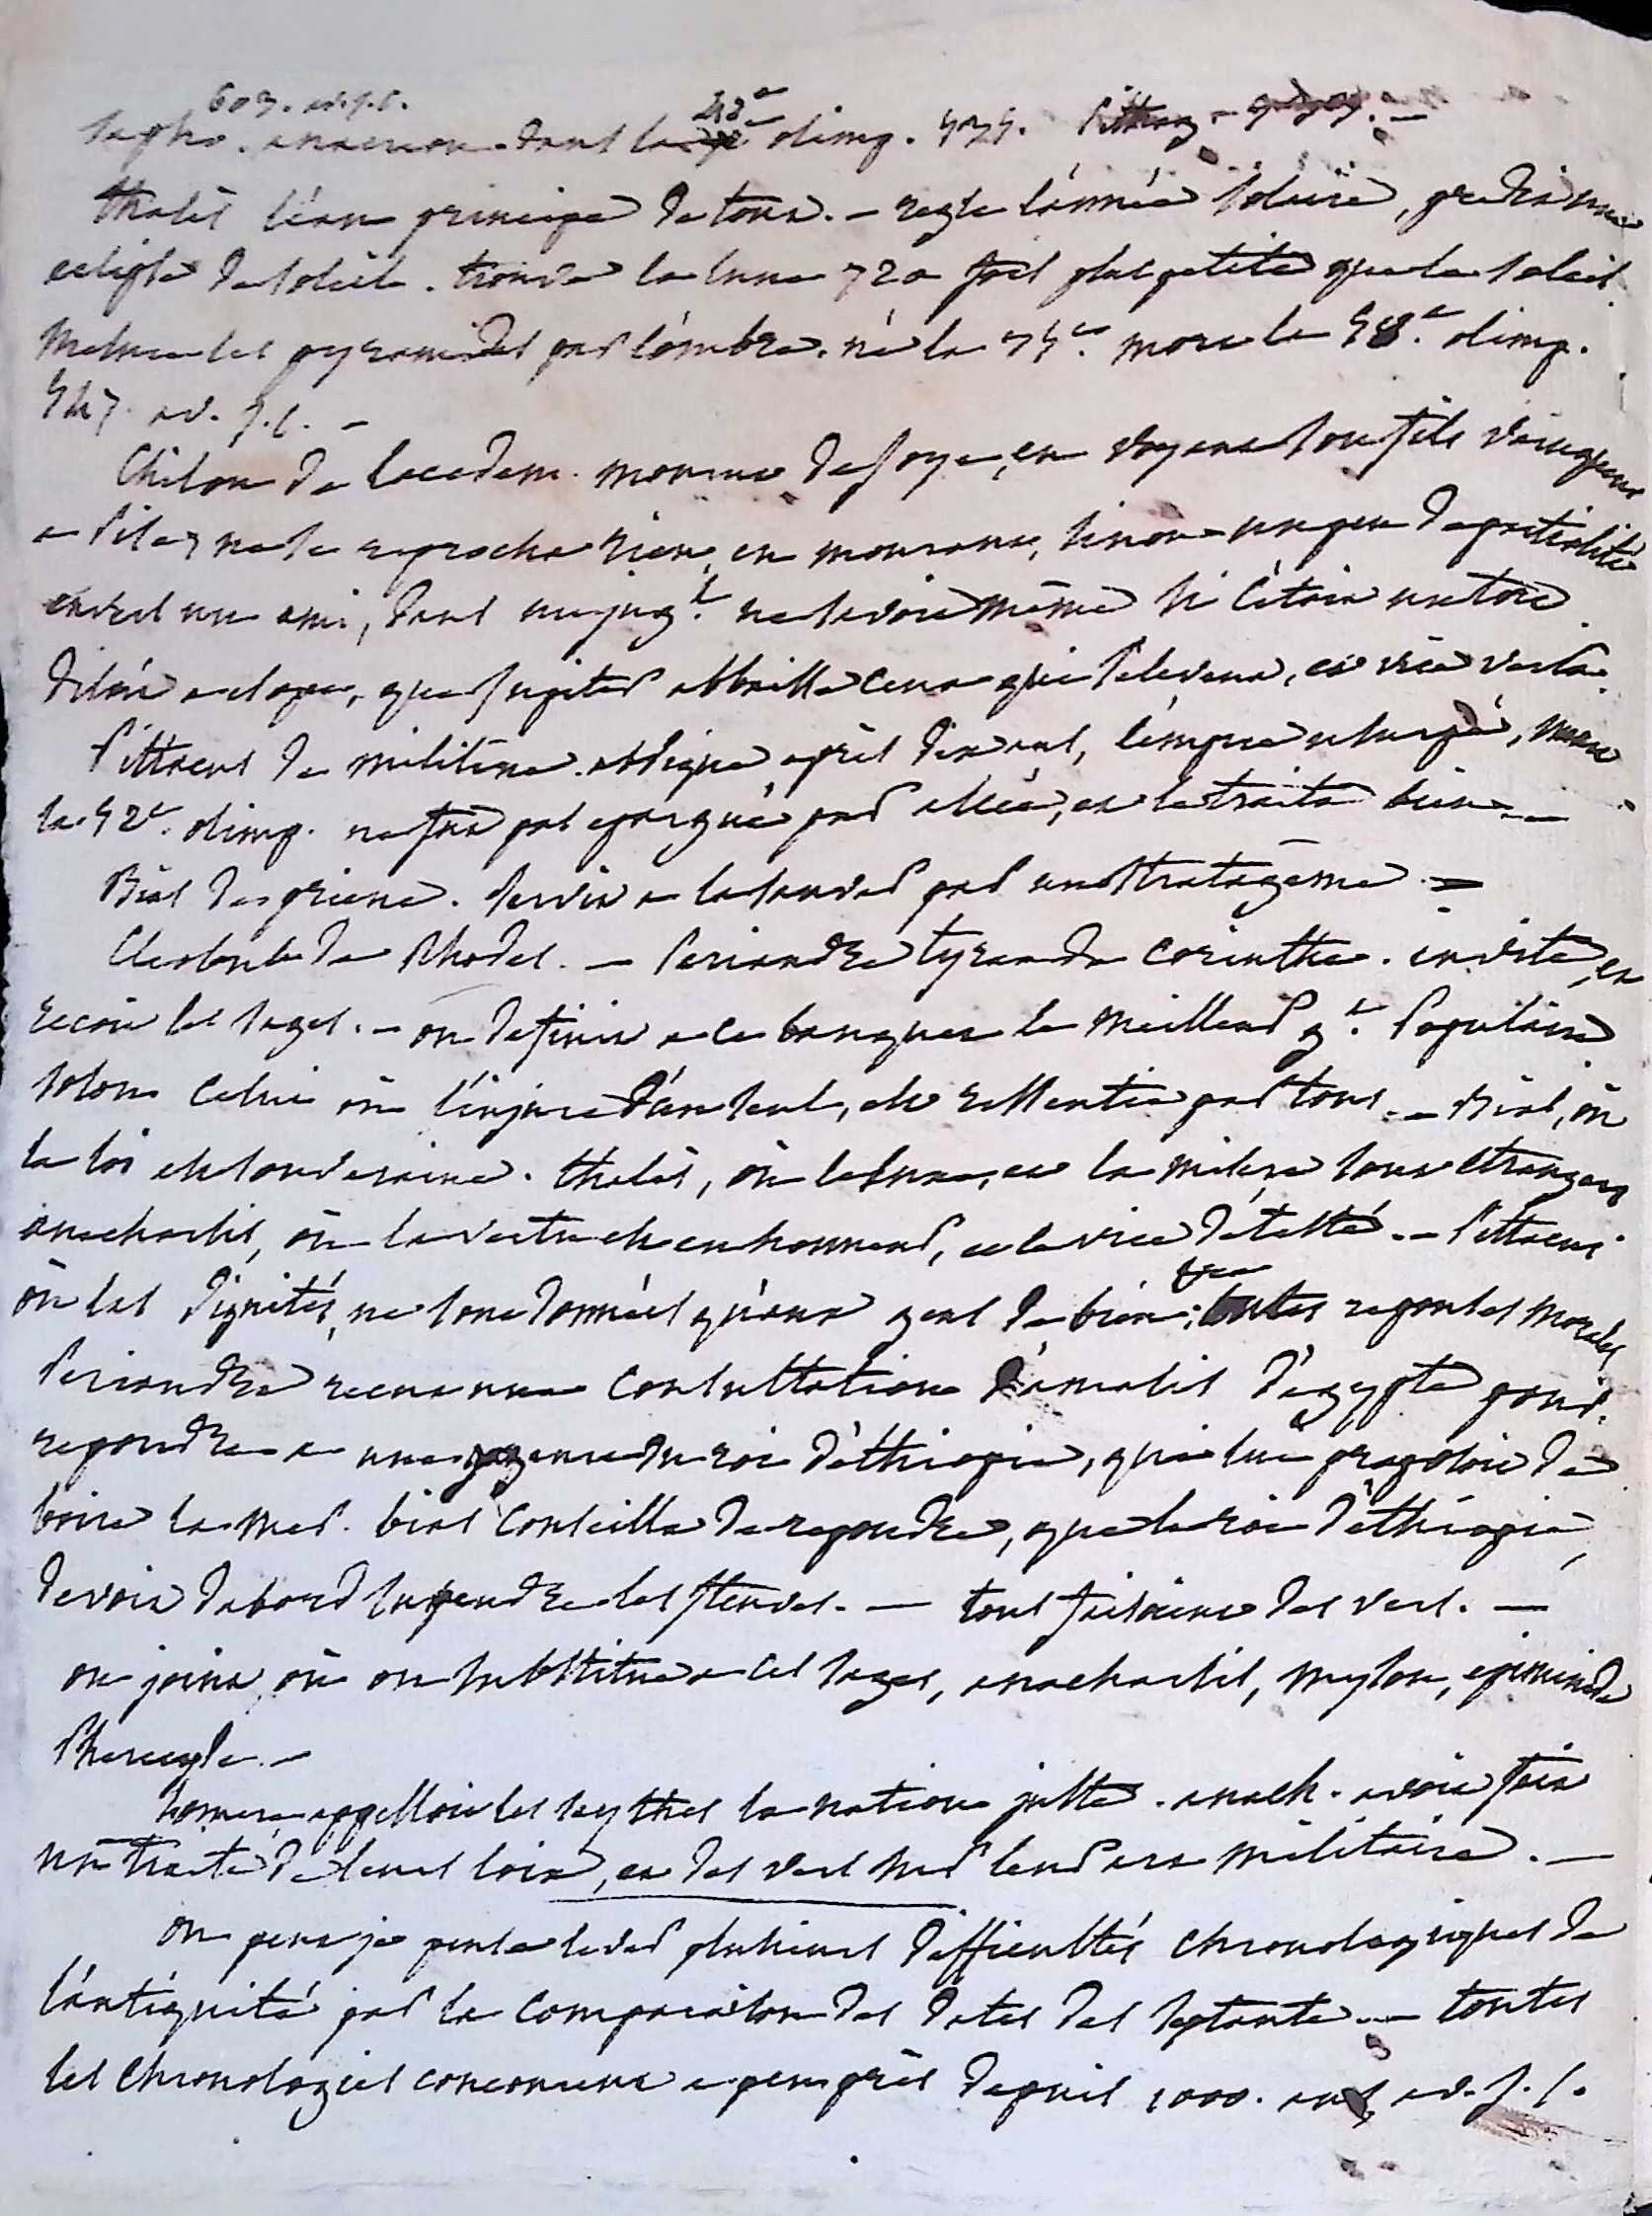 603. av. J. C. 42e
Sapho. anacreon. dans la olimp. 575.
thalès l'eau principe de tout. – regle l'année solaire, predit une
eclipse de soleil. trouve la lune 720 fois plus petite que le soleil.
mesure les pyramides par l'ombre. né la 35e. mort la 58e. olimp.
547 av. J. C. –
Chilon de lacedem. mourut de joye, en voyant son fils vainqueur
a Pise, ne se reprocha rien, en mourant, sinon un peu de partialité
envers un ami, dans un jugt. ne savoit même si c'étoit un tort.
disoit a esope, que jupiter abbaisse ceux qui s'elevent, et vice versa.
Pittacus de militene. abdique après dix ans, l'empire usurpé, meurt
la 52e. olimp. ne fut pas epargné par alcée, et le traita bien. –
Bias de priene. servit a la sauver par un stratagème. –
Cleobule de Rhodes. – Periandre tyran de Corinthe. invite, et
recoit les sages. – on definit a ce banquet le meilleur gt. Populaire
solon celui où l'injure d'un seul, est ressentie par tous. – Bias, où
la loi est souveraine. thalès, où le luxe, et la misère sont etrangers
anacharsis, où la vertu est en honneur, et le vice détesté. – Pittacus
où les dignités, ne sont données qu'aux gens de bien; reponses morales
Periandre recut une consultation d'amasis d'égypte pour
repondre a une gageure du roi d'éthiopie, qui lui proposoit de
boire la mer. bias conseilla de repondre, que le roi d'éthiopie,
devoit dabord suspendre les fleuves. — tous faisoient des vers. —
on joint, où on substitue a ces sages, anacharsis, myson, epimenide
Pherecyde. –
homere appelloit les scythes la nation juste. anach. avoit fait
un traité de leurs loix, et des vers sur leur art militaire. —
on peut je pense lever plusieurs difficultés chronologiques de
l'antiquité par la comparaison des dates des septante. – toutes
les chronologies concourent a peu près depuis 1000. ans av. J. C.